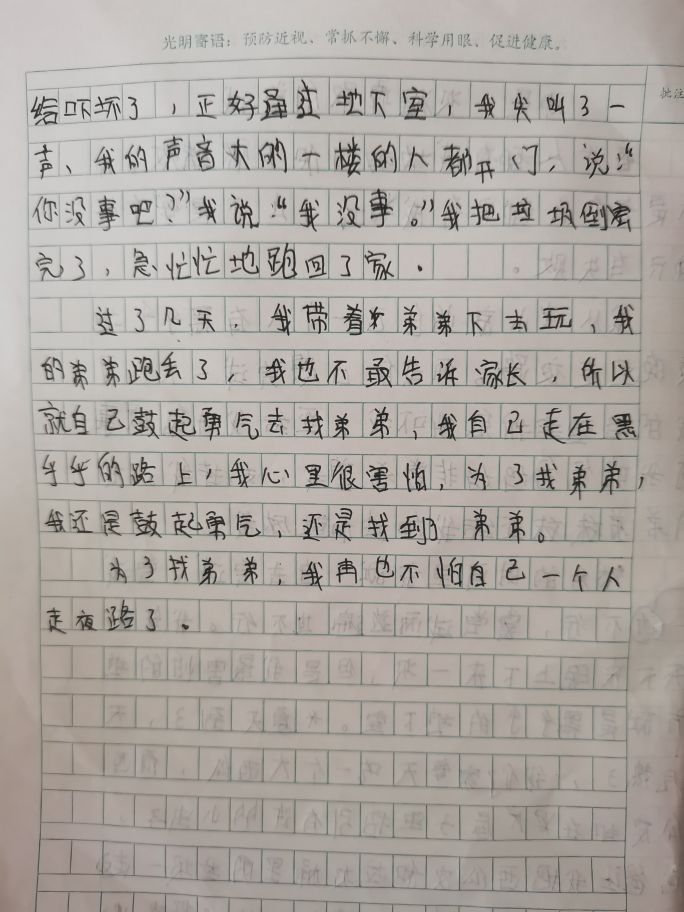 光明寄语：预防近视、常抓不懈、科学用眼、促进健康。
批注
给吓坏了，正好路过地下室，我尖叫了一
声、我的声音大的一楼的人都开门，说：“
你没事吧？”我说：“我没事。”我把垃圾倒
完了，急忙忙地跑回了家．
过了几天．我带着弟弟下去玩，我
的弟弟跑丢了，我也不敢告诉家长，所以
就自己鼓起勇气去找弟弟，我自己走在黑
乎乎的路上，我心里很害怕，为了找弟弟，
我还是鼓起勇气，还是找到了弟弟。
为了找弟弟，我再也不怕自己一个人
走夜路了。